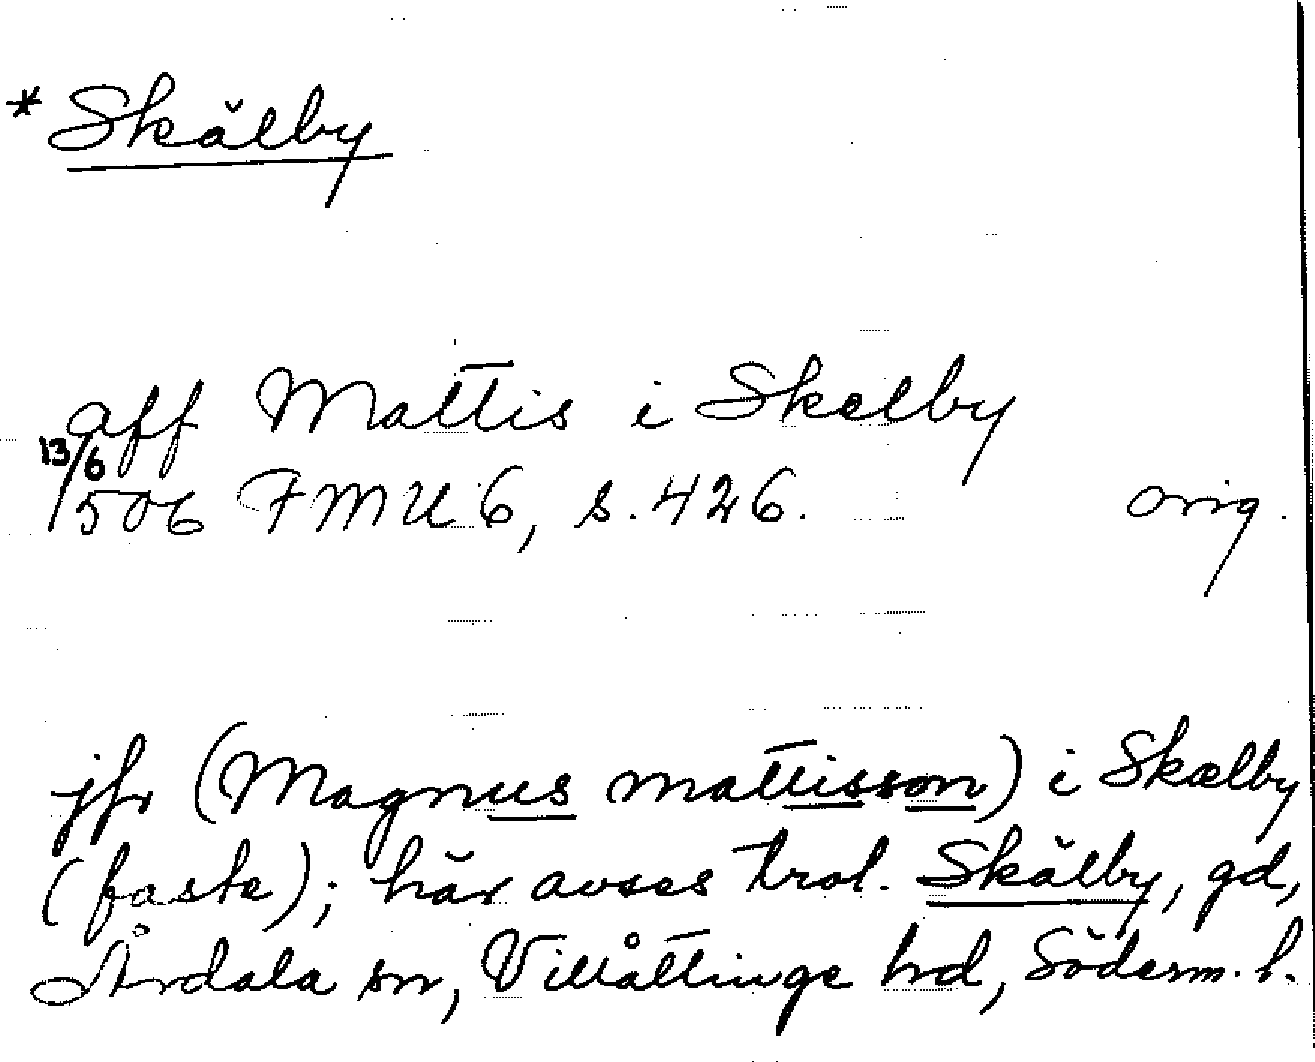 * Skälby
aff Mattis i Skelby
13/6 506 FMU 6, s. 426. orig.
jfr (Magnus mattisson) i Skælby
(faste); här avses trol. Skälby, gd,
Årdala sn, Villåttinge hd, Söderm. l.